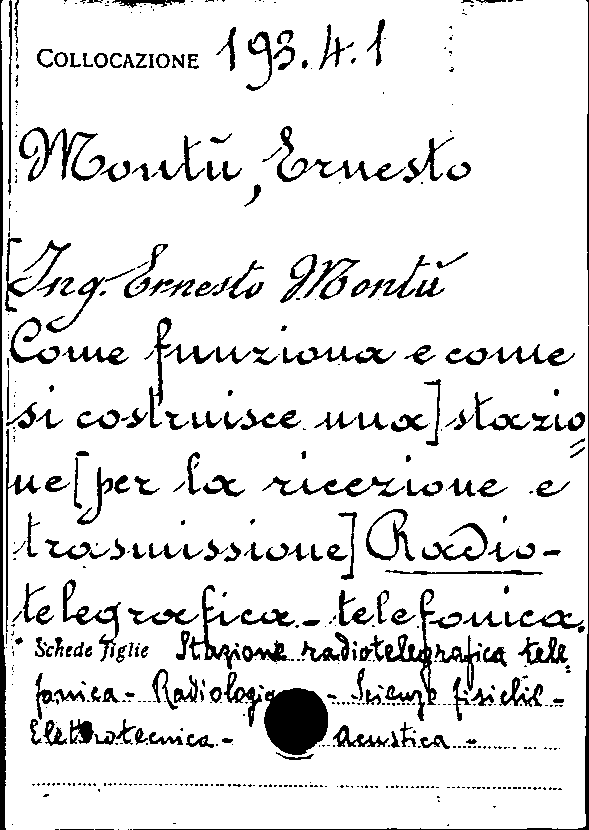 COLLOCAZIONE 193.4.1
Montù, Ernesto
[Ing. Ernesto Montù
Come funziona e come
si costruisce una] stazio=
ne [per la ricezione e
trasmissione] Radio-
telegrafica - telefonica.
Schede figlie Stazione radiotelegrafica tele=
fonica - Radiologia - Scienze fisiche -
Elettrotecnica - Acustica -